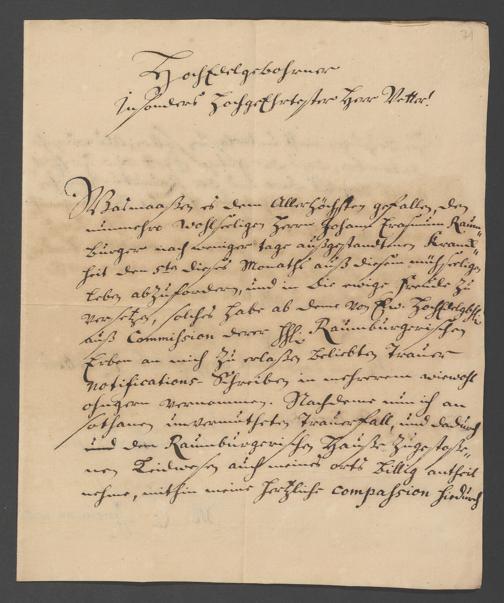 HochEdelgebohrner
Insonders Hochgeehrtester Herr Vetter!
Wasmaaßen es dem Allerhöchsten gefallen, den
nunmehro wohlseeligen Herrn Johann Erasmum Raum-
burger nach weniger tage außgestandtenen Kranck-
heit den 5ten dieses Monaths auß diesem mühseeligen
Leben abzufordern, und in die ewige Freude zu
versetzen, solches habe ab dem von Ew. HochEdelgebh.
auß Commission derer Raumburgerischen
Erben an mich zu erlaßen beliebten Trauer
Notifications-Schreiben in mehrerem wiewohl
ohngern vernommen. Nachdeme nun ich an
sothanen unvermutheten Trauerfall, und dadurch
und dem Raumburgerischen Hauße zugestoße-
nen Leidwesen auch meines orts billig antheil
nehme, mithin meine hertzliche compassion hiedurch